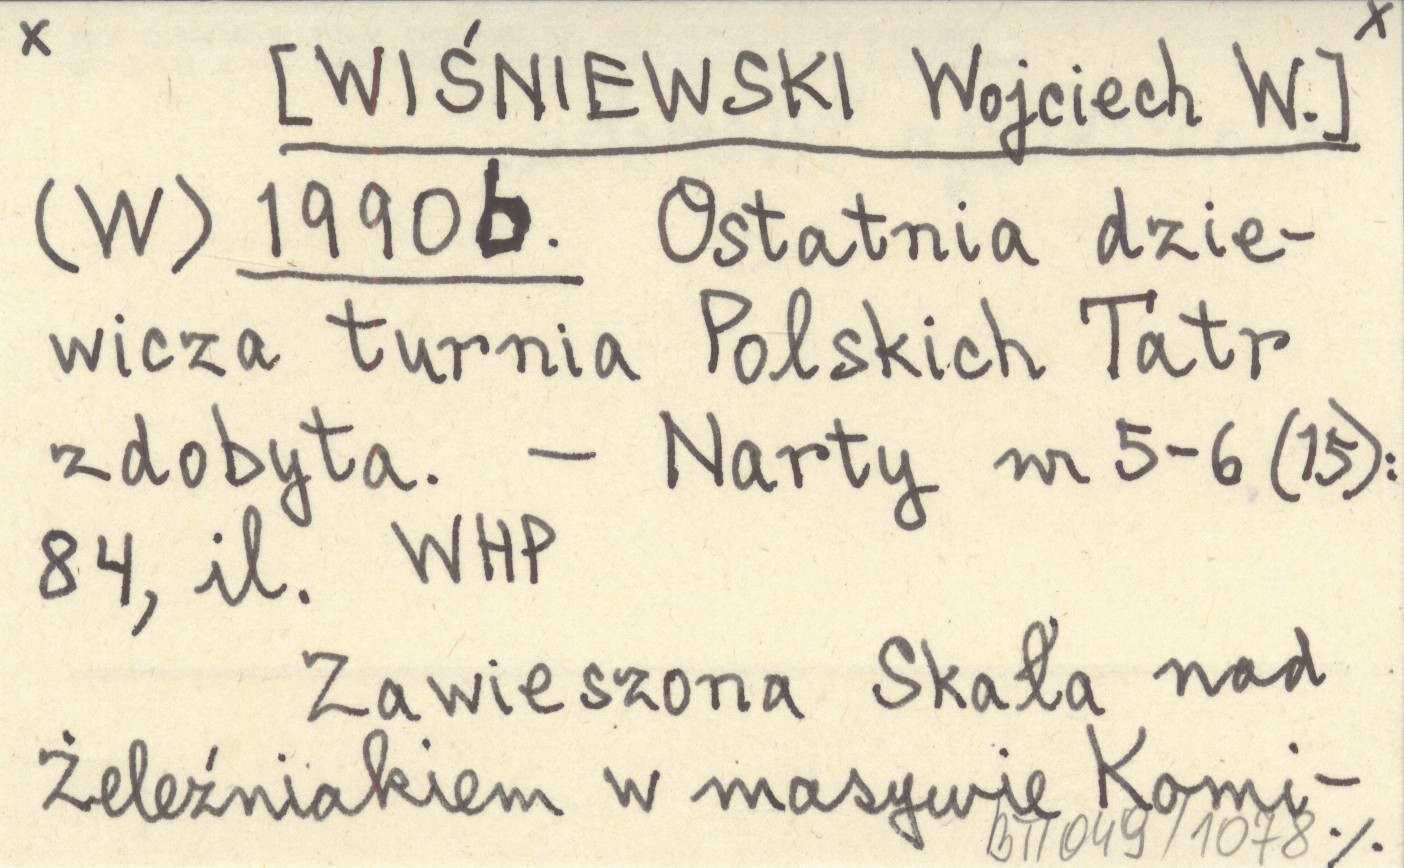 x x
[WIŚNIEWSKI Wojciech W.]
(W) 1990b. Ostatnia dzie-
wicza turnia Polskich Tatr
zdobyta. — Narty nr 5-6 (15):
84, il. WHP
Zawieszona Skała nad
Żeleźniakiem w masywie Komi-
BII 049/1078 ./.